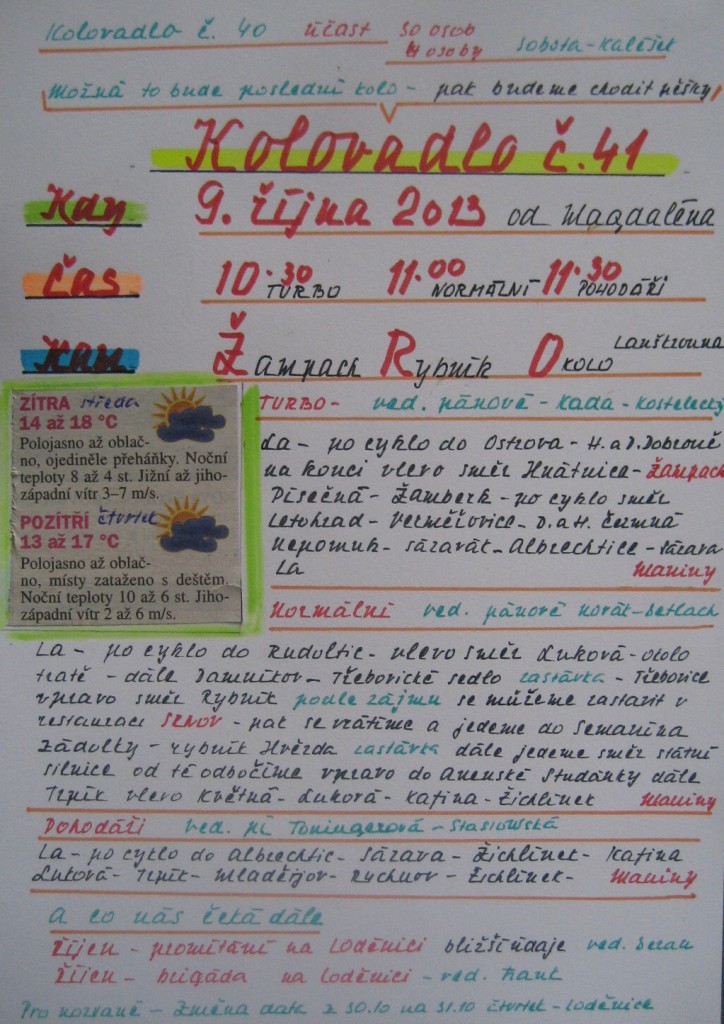 Kolovadlo č. 40 účast 30 osob
4 osoby sobota - Kališek
Možná to bude poslední kolo - pak budeme chodit pěšky
Kolovadlo č. 41
Kdy 9. října 2013 od Magdaléna
Čas 10.30 TURBO 11.00 NORMÁLNÍ 11.30 POHODÁŘI
Kam Žampach Rybník Okolo Lanškrouna
ZÍTRA středa
14 až 18 °C
Polojasno až oblač-
no, ojediněle přeháňky. Noční
teploty 8 až 4 st. Jižní až jiho-
západní vítr 3–7 m/s.
POZÍTŘÍ čtvrtek
13 až 17 °C
Polojasno až oblač-
no, místy zataženo s deštěm.
Noční teploty 10 až 6 st. Jiho-
západní vítr 2 až 6 m/s.
TURBO - ved. pánové - Kada - Kostelecký
La - po cyklo do Ostrova - H. a D. Dobrouč
na konci vlevo směr Hnátnice - Žampach
Písečná - Žamberk - po cyklo směr
Letohrad - Verměřovice - D. a H. Čermná
Nepomuk - Sázavát - Albrechtice - Sázava
La Maniny
Normální ved. pánové Horát - Detlach
La - po cyklo do Rudoltic - vlevo směr Luková - okolo
tratě - dále Damníkov - Třebovické sedlo zastávka - Třebovice
vpravo směr Rybník podle zájmu se můžeme zastavit v
restauraci - pak se vrátíme a jedeme do Semanína
Zádolky - rybník Hvězda zastávka dále jedeme směr státní
silnice od té odbočíme vpravo do Anenské Studánky dále
Trpík vlevo Květná - Luková - Katina - Žichlínek Maniny
Pohodáři ved. pí Toningerová - Stasiowská
La - po cyklo do Albrechtic - Sázava - Žichlínek - Katina
Luková - Trpík - Mladějov - Rychnov - Žichlínek - Maniny
A co nás čeká dále
říjen - promítání na Loděnici bližší údaje ved. Beran
říjen - brigáda na loděnici - ved. Frant
Pro pozvané - Změna data z 30.10 na 31.10 čtvrtek - loděnice